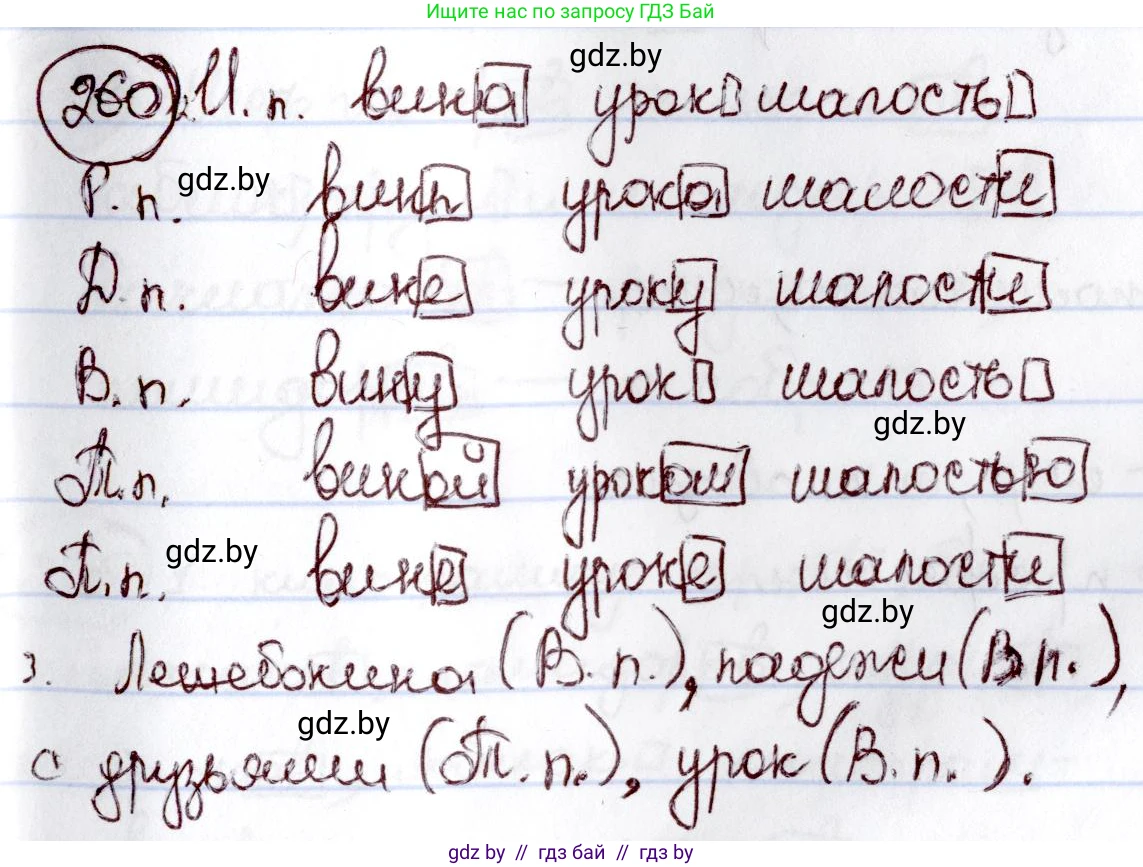 Ищите нас по запросу ГДЗ Бай
gdz.by
260 2. И. п. вина урок шалость
gdz.by
Р. п. вин урока шалости
Д. п. вине уроку шалости
В. п. вину урок шалость
gdz.by
Т. п. виной уроком шалостью
gdz.by
П. п. вине уроке шалости
gdz.by
3. Лешебокина (В. п.), падежи (В. п.),
gdz.by
с друзьями (Т. п.), урок (В. п.).
gdz by // гдз бай // гдз by